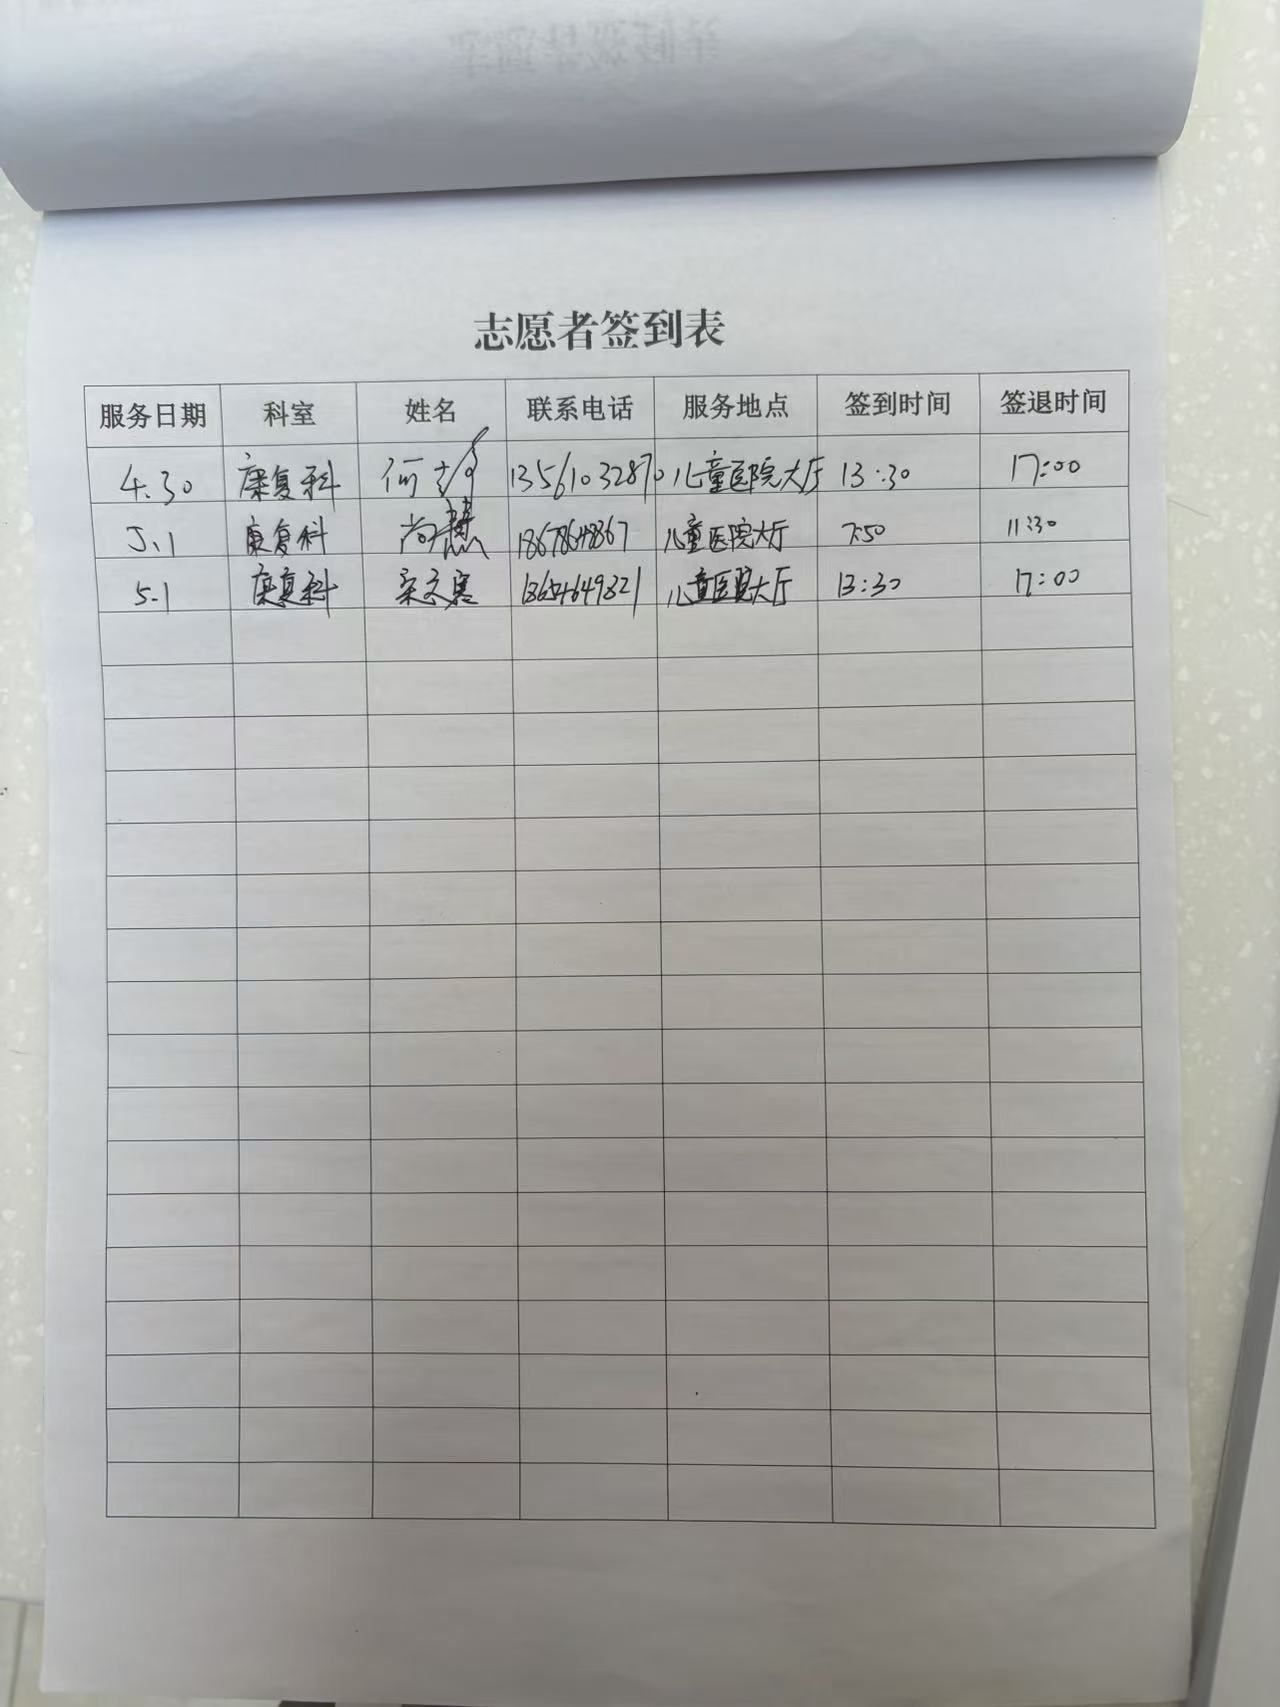 志愿者签到表
服务日期 科室 姓名 联系电话 服务地点 签到时间 签退时间
4.30 康复科 何 13561032870 儿童医院大厅 13:30 17:00
5.1 康复科 尚慧 18678648367 儿童医院大厅 7:50 11:30
5.1 康复科 宋文 儿童医院大厅 13:30 17:00